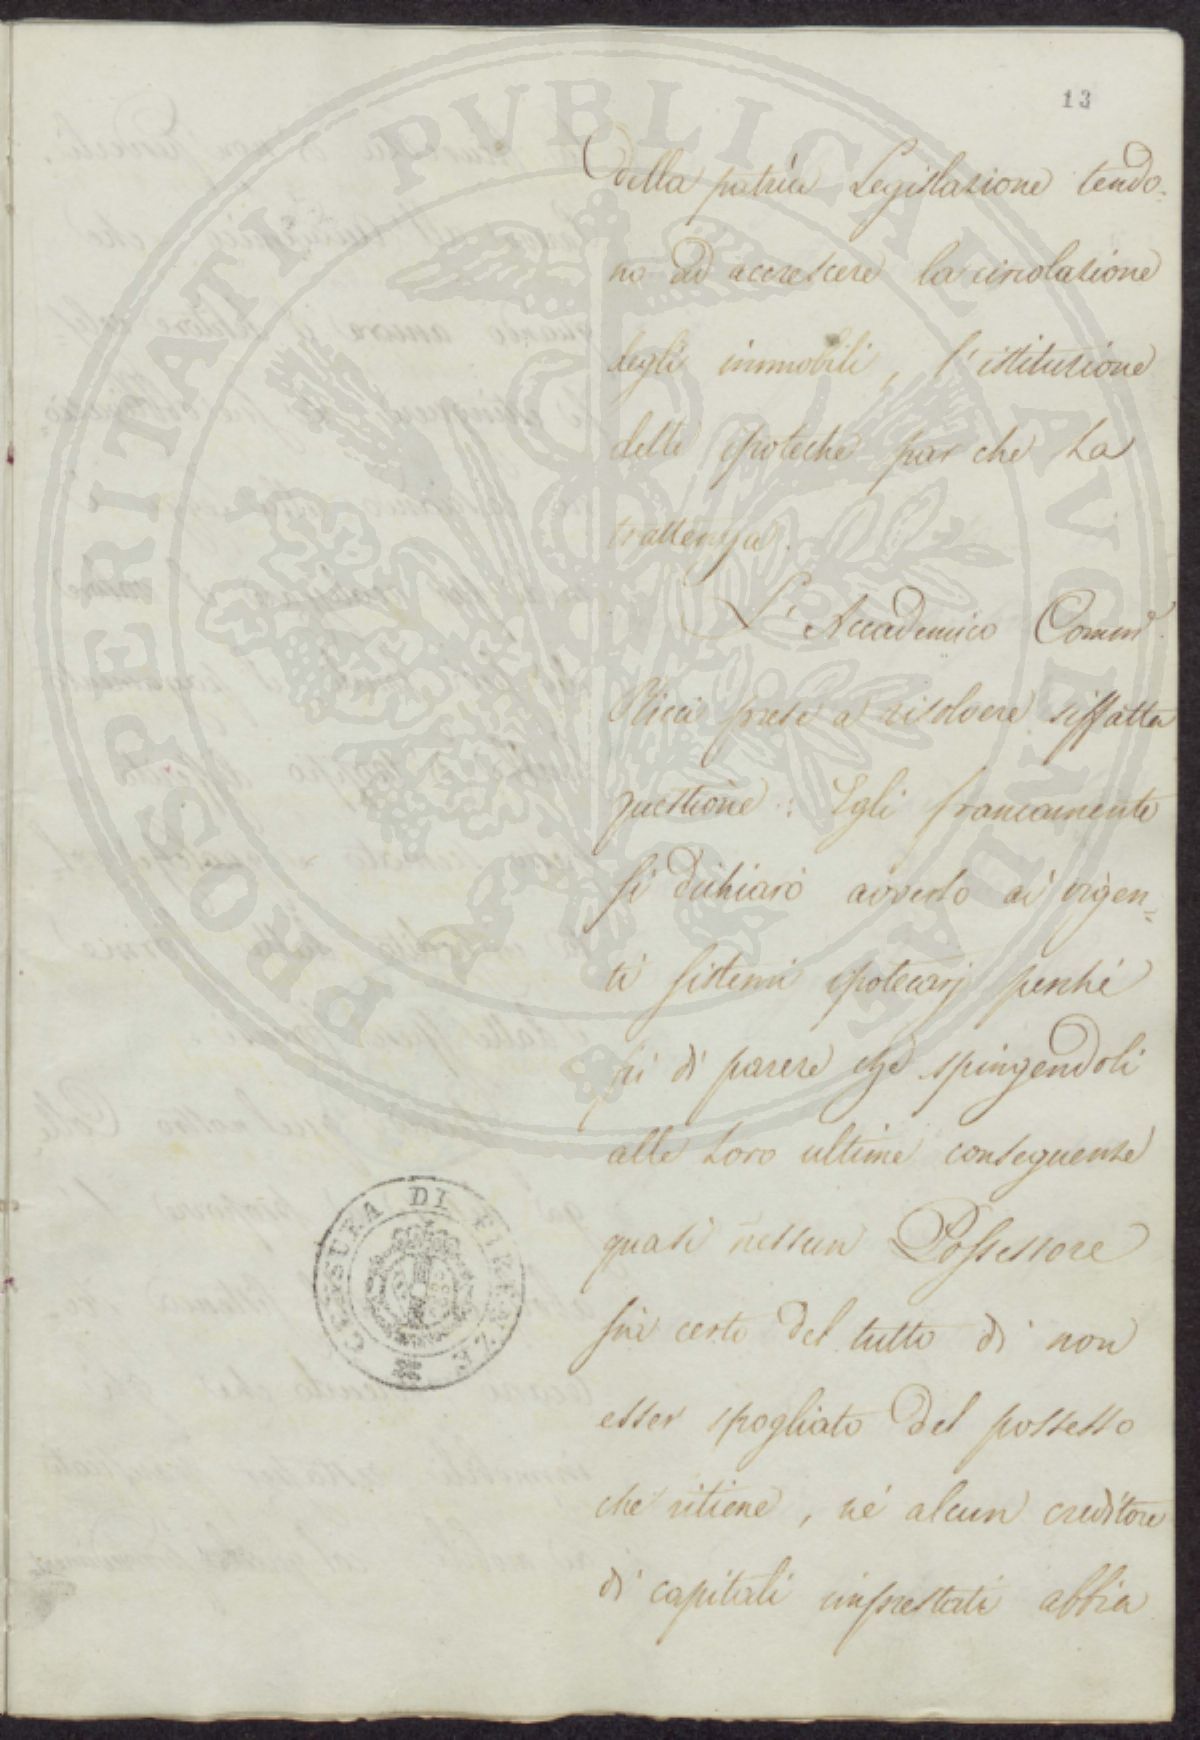 13
della patria Legislazione tendo=
no ad accrescere la circolazione
degli immobili, l'istituzione
delle ipoteche par che La
trattenga.
L'Accademico Commr.
Ricci prese a risolvere siffatta
questione: Egli francamente
si dichiarò avverso ai vigen=
ti sistemi ipotecarj perchè
fu di parere che spingendoli
alle Loro ultime conseguenze
quasi nessun Possessore
sia certo del tutto di non
esser spogliato del possesso
che ritiene, nè alcun creditore
di capitali imprestati abbia
CENSURA DI FIRENZE
PROSPERITATI PUBLICAE AUGENDAE